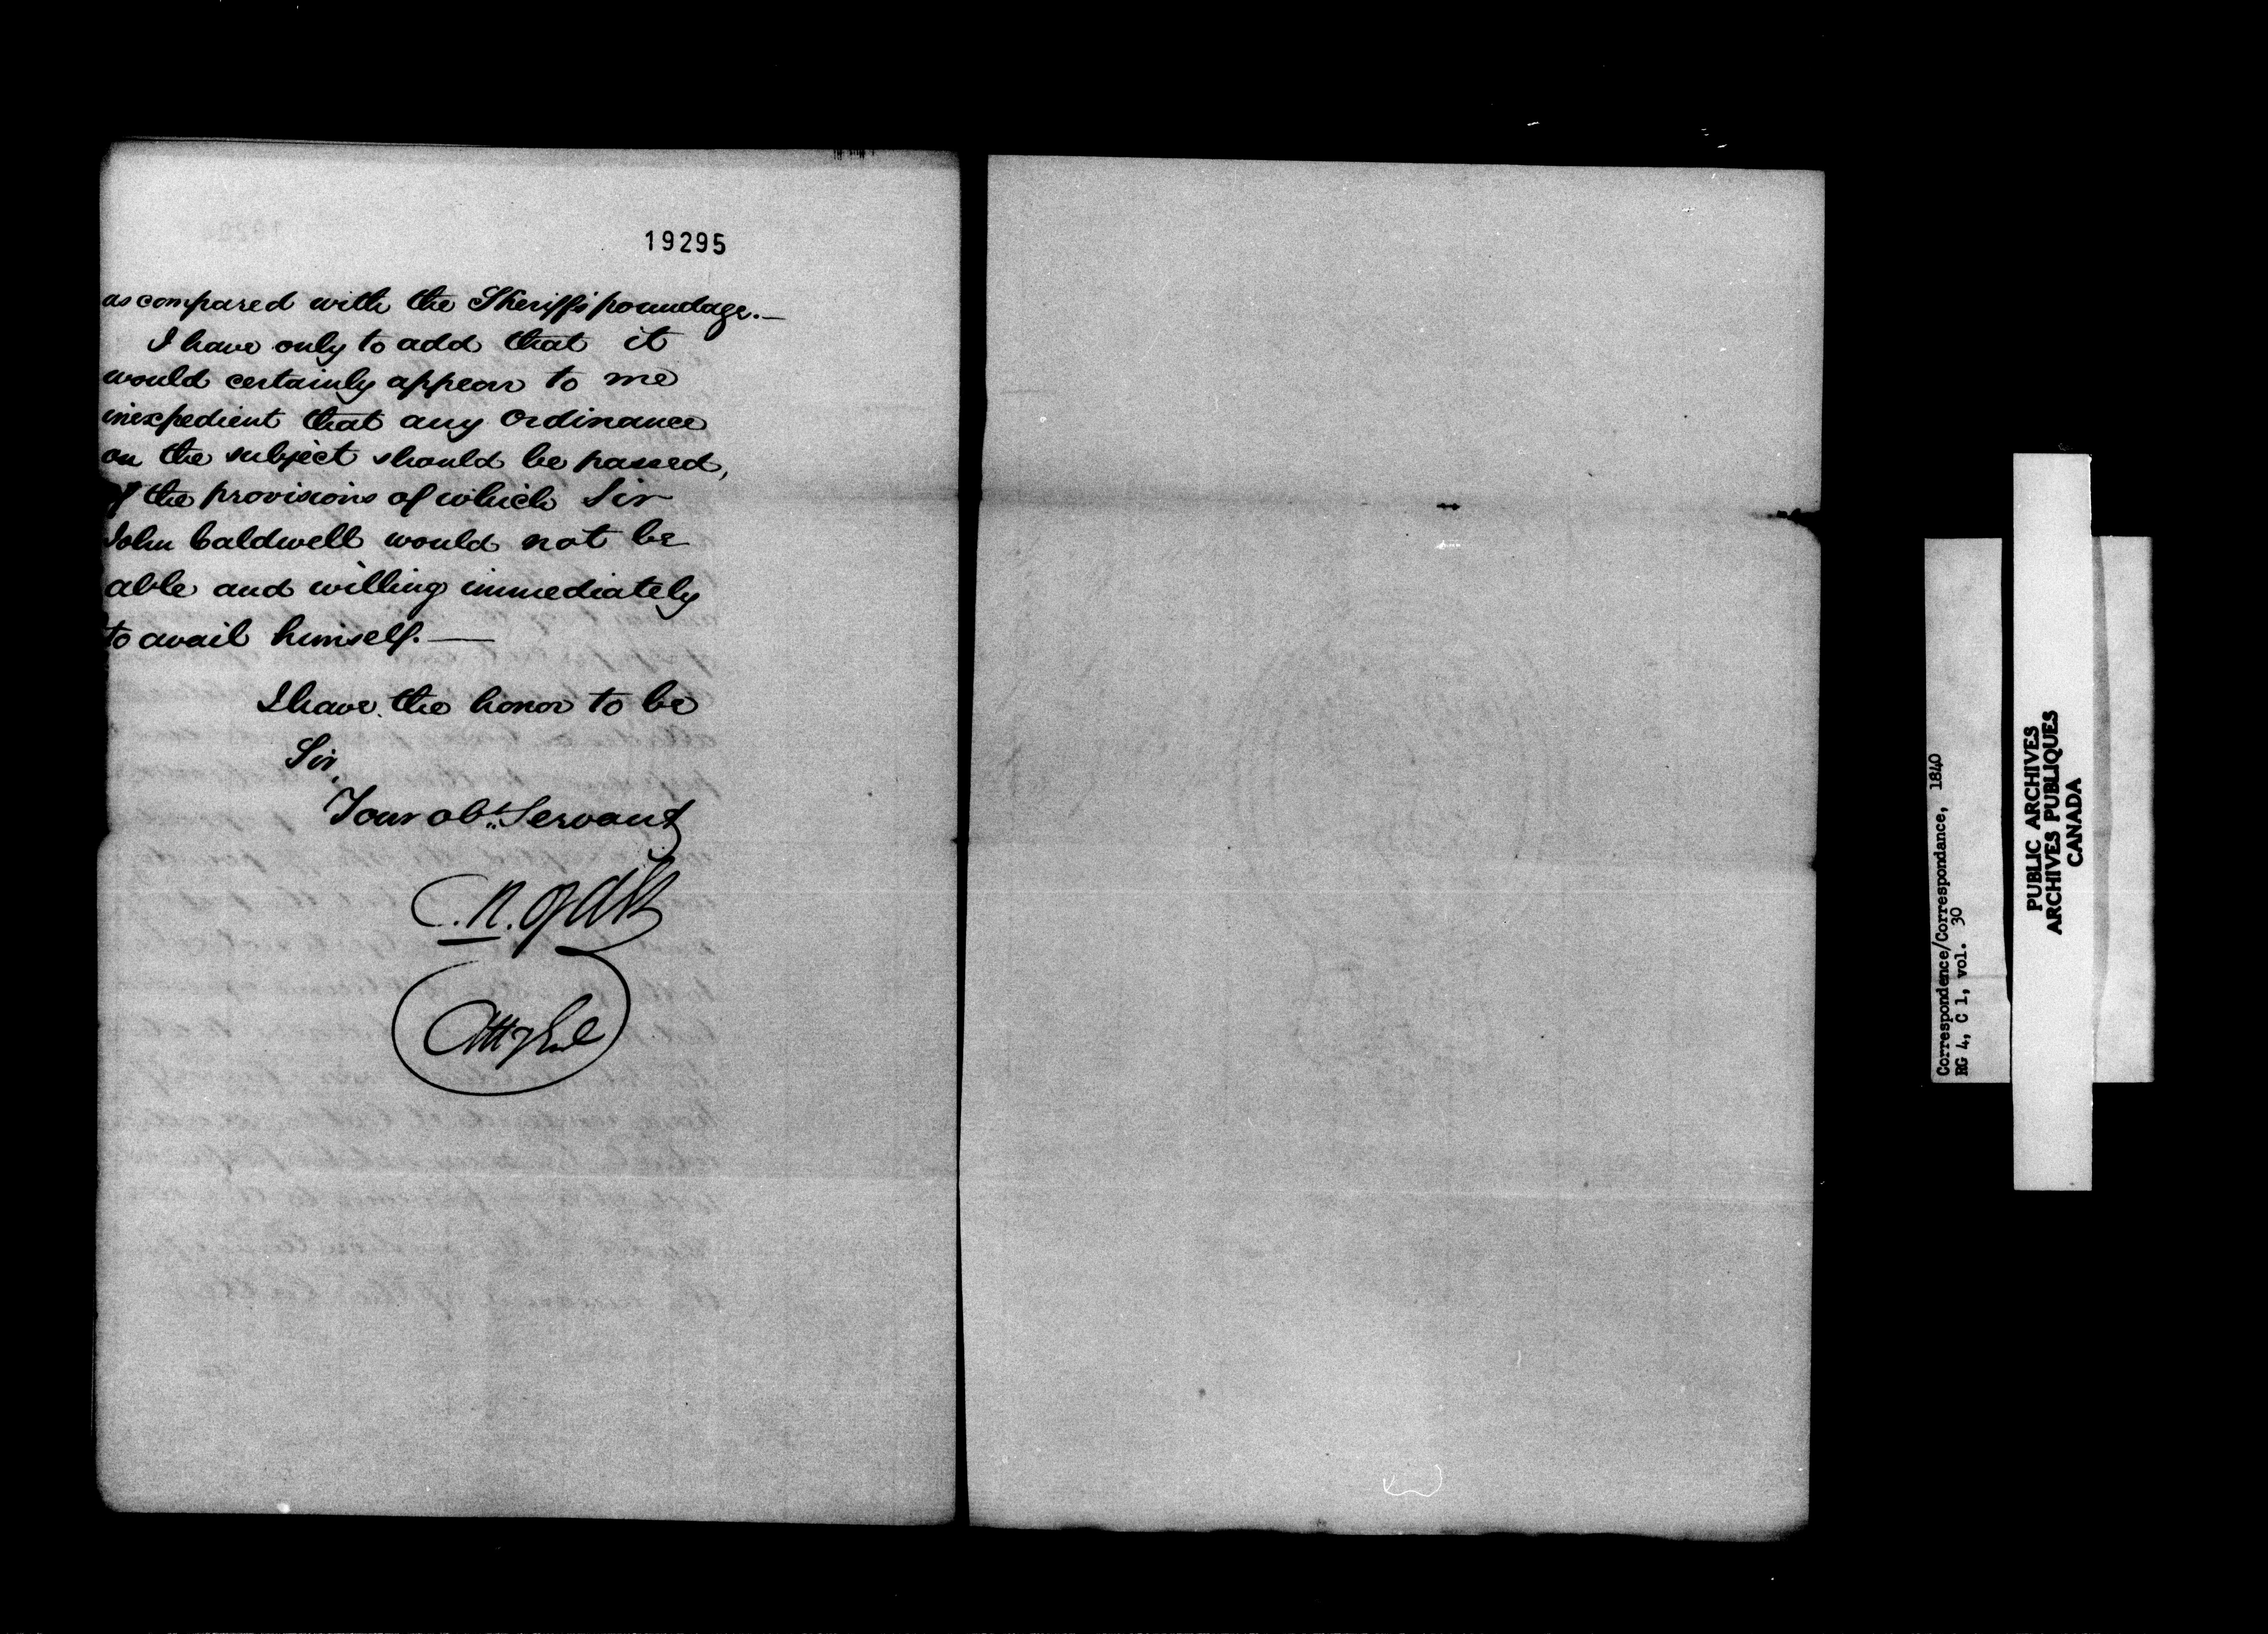 19295
as compared with the Sheriff's poundage.—
I have only to add that it
would certainly appear to me
inexpedient that any Ordinance
on the subject should be passed,
of the provisions of which Sir
John Caldwell would not be
able and willing immediately
to avail himself.—
I have the honor to be
Sir,
Your obt. Servant
C. R. Ogden
Atty Genl
Correspondence/Correspondance, 1840
RG 4, C 1, vol. 30
PUBLIC ARCHIVES
ARCHIVES PUBLIQUES
CANADA